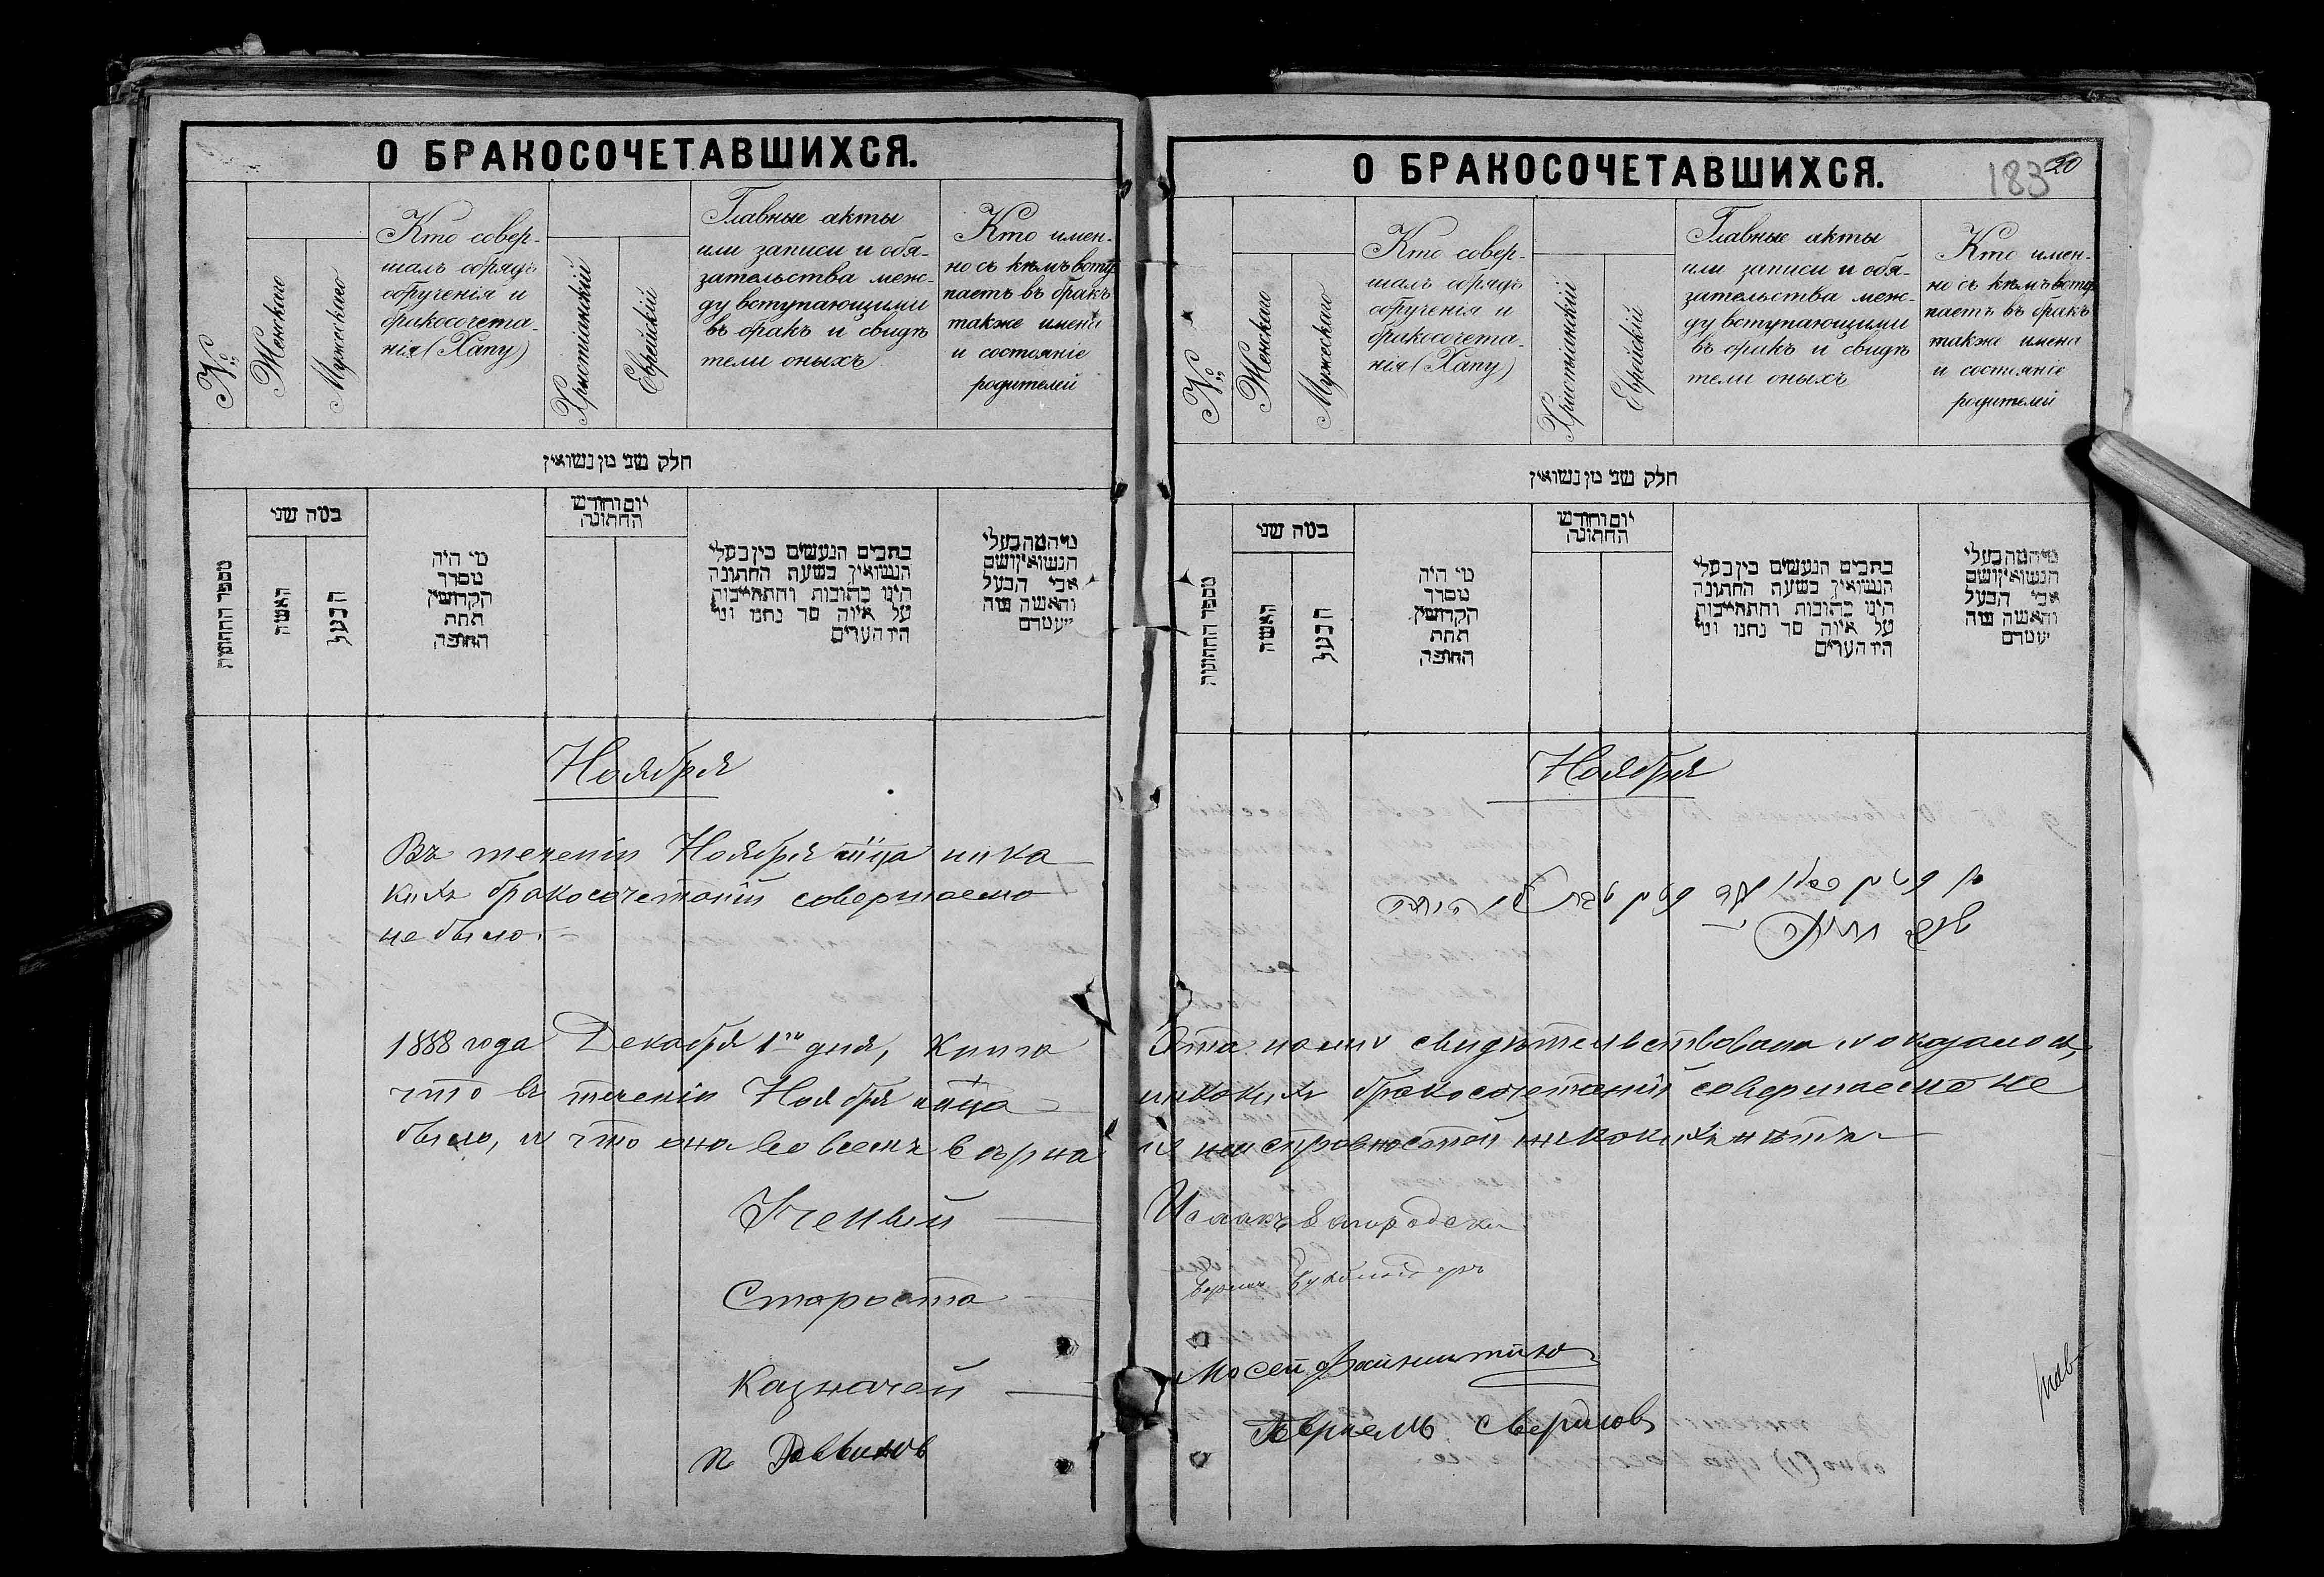 О БРАКОСОЧЕТАВШИХСЯ.
№
Женскаго
Мужескаго
Кто совер-
шалъ обрядъ
обрученія и
бракосочета-
нія (Хапу)
Христіанскій
Еврейскій
Главные акты
или записи и обя-
зательства меж-
ду вступающими
въ бракъ и свидѣ
тели оныхъ
Кто имен-
но съ кѣмъ всту
паетъ въ бракъ
также имена
и состояніе
родителей
חלק שני מן נשואין
מספר החתונות
כמה שני
האשה
הבעל
מי היה
מסדר
הקדושין
תחת
החופה
יום וחודש
החתונה
בתבים הנעשים בין בעלי
הנשואין בשעת החתונה
הינו כתובות והתחייבות
על איזה סך נתנו ומי
היו העדים
הנשואין ושם
אבי הבעל
והאשה
Ноября
Въ теченіи Ноября м-ца ника
кихъ бракосочетаній совершаемо
не было.
1888 года Декабря 1го дня, Книга
что въ теченіи Ноября м-ца
было, и что она во всемъ вѣрна
Ученый
Староста
Казначей
п Раввинъ
О БРАКОСОЧЕТАВШИХСЯ.
183
20
№
Женскаго
Мужескаго
Кто совер-
шалъ обрядъ
обрученія и
бракосочета-
нія (Хапу)
Христіанскій
Еврейскій
Главные акты
или записи и обя-
зательства меж-
ду вступающими
въ бракъ и свидѣ
тели оныхъ
Кто имен-
но съ кѣмъ всту
паетъ въ бракъ
также имена
и состояніе
родителей
חלק שני מן נשואין
מספר החתונות
כמה שני
האשה
הבעל
מי היה
מסדר
הקדושין
תחת
החופה
יום וחודש
החתונה
בתבים הנעשים בין בעלי
הנשואין בשעת החתונה
הינו כתובות והתחייבות
על איזה סך נתנו ומי
היו העדים
הנשואין ושם
אבי הבעל
והאשה
Ноября
Эта нами свидѣтельствована и оказалось,
никакихъ бракосочетаній совершаемо не
и неисправностей никакихъ нѣтъ
Исаакъ
Мосей Файнштейнъ
Свердловъ